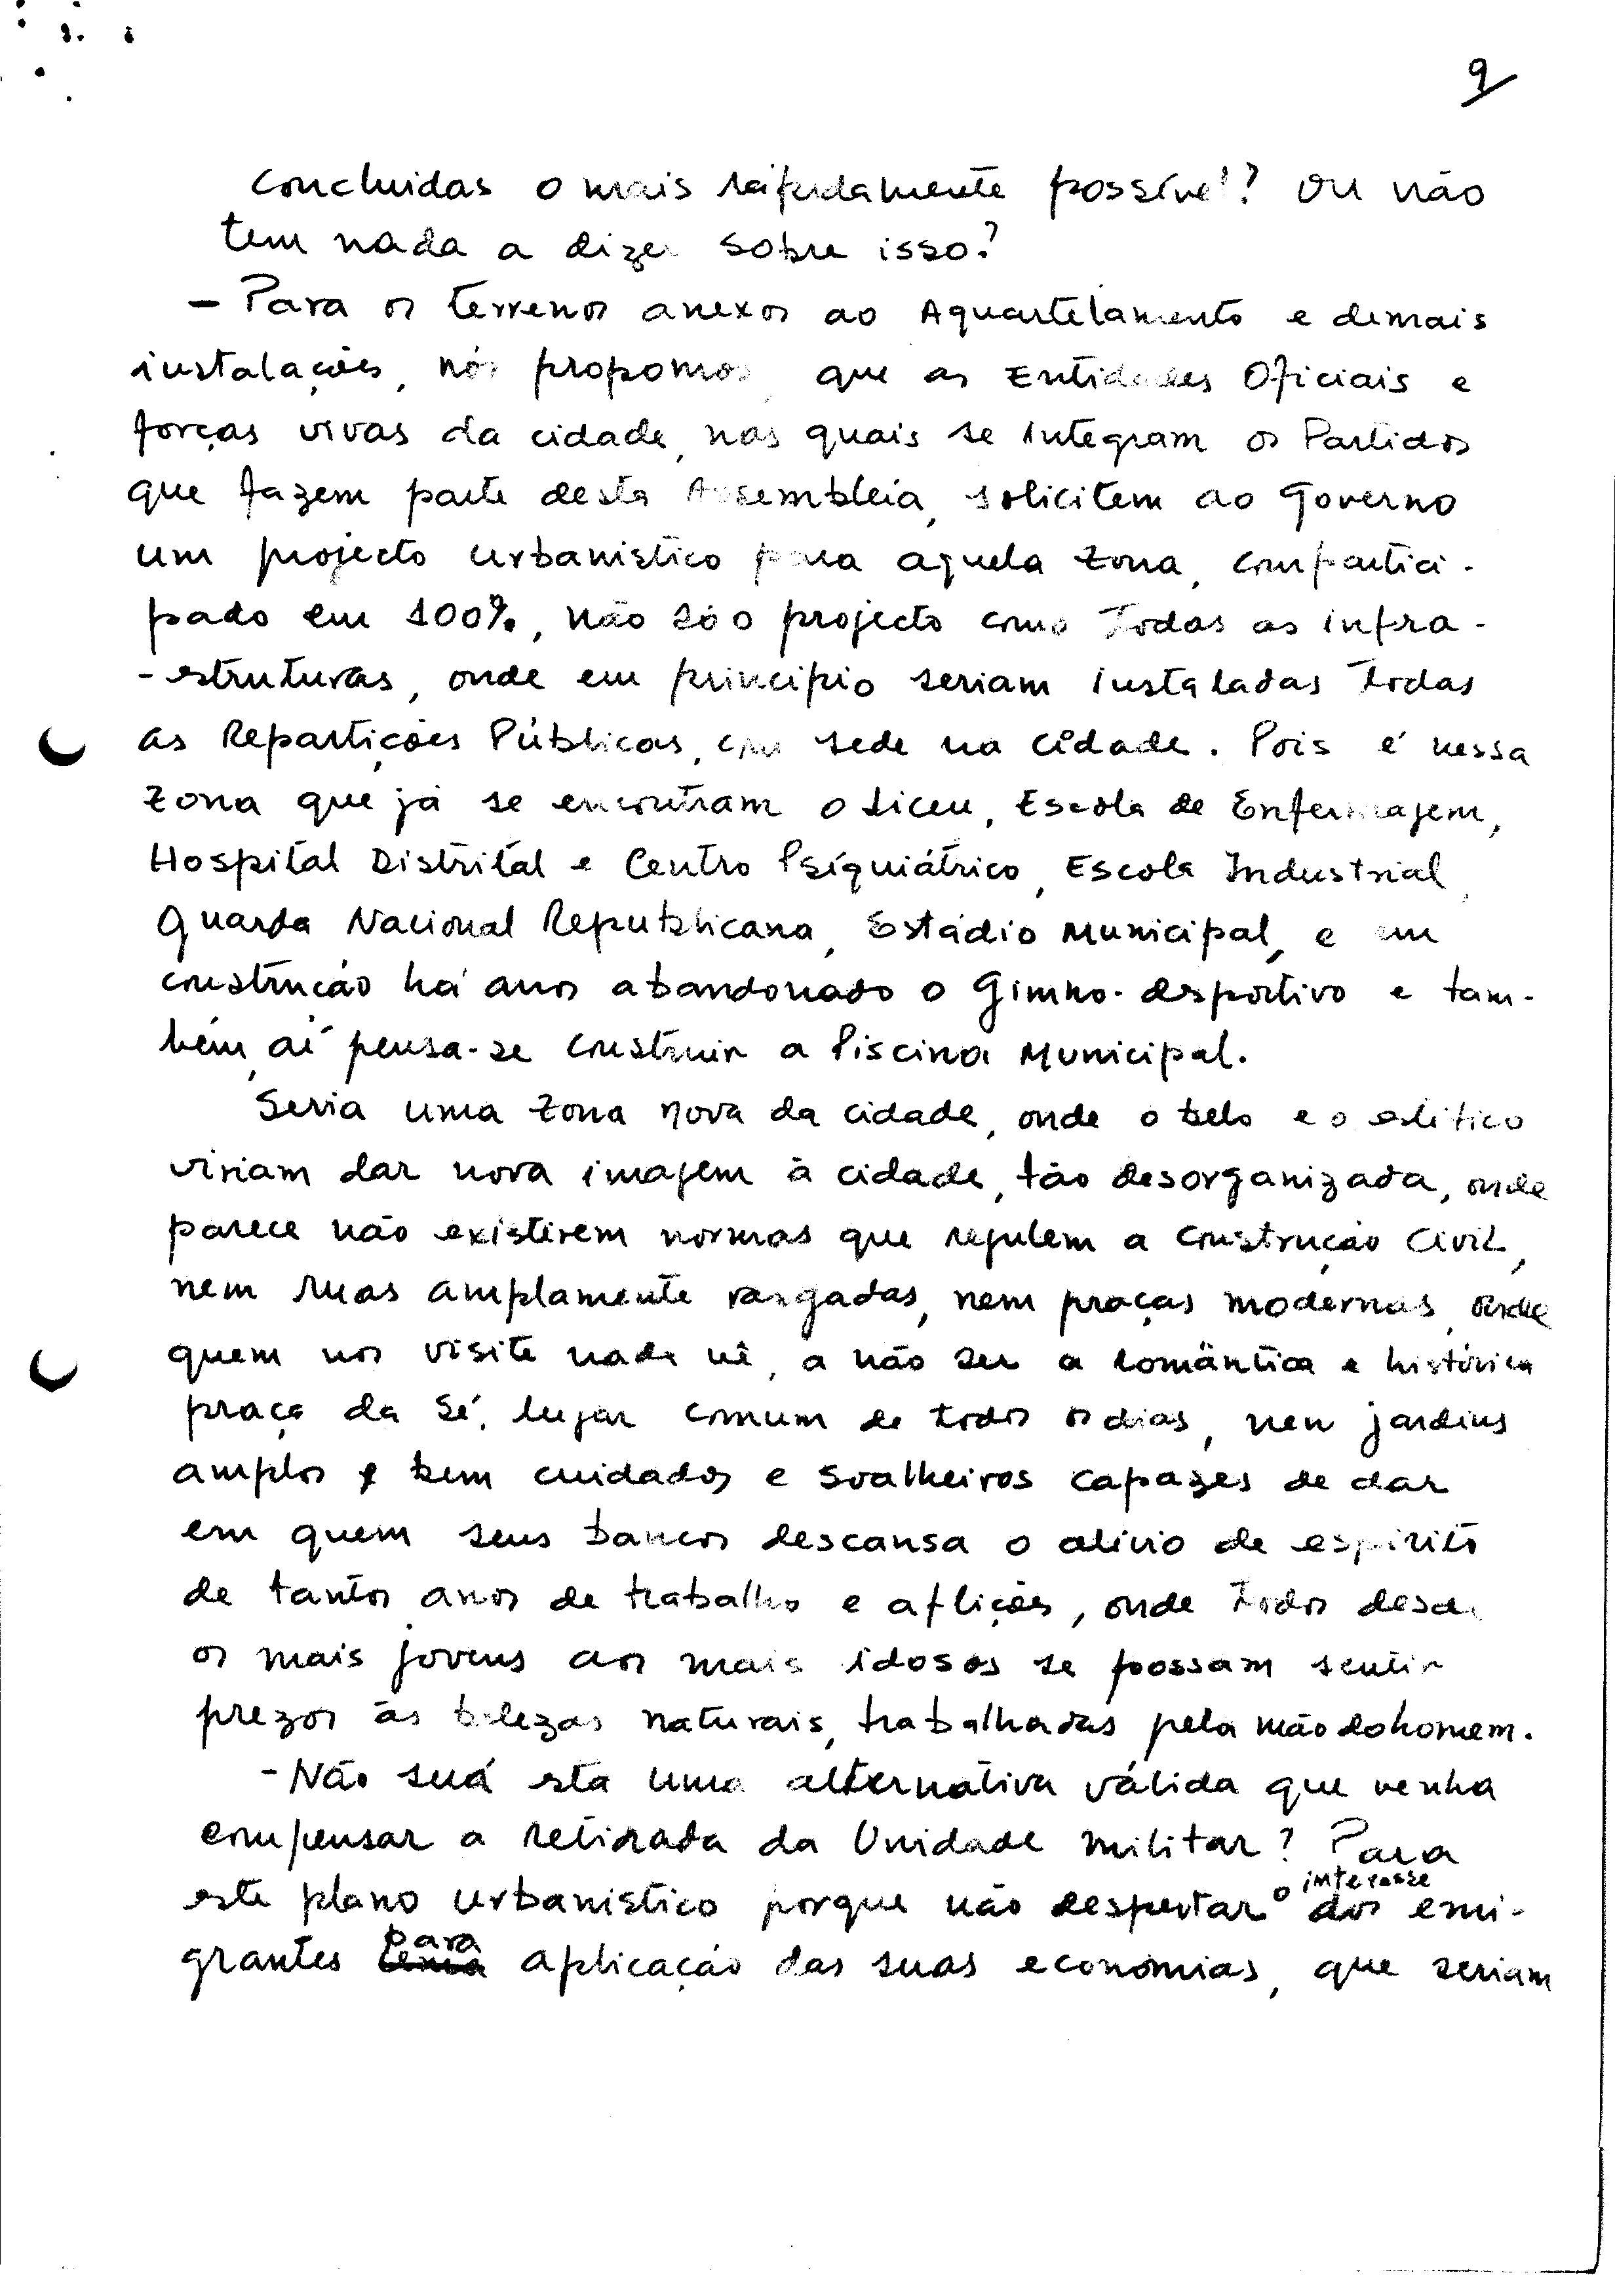 9
concluidas o mais rápidamente possível? ou não
tem nada a dizer sobre isso?
- Para os terrenos anexos ao Aquartelamento e demais
instalações, nós propomos, que as Entidades Oficiais e
forças vivas da cidade, nas quais se integram os Partidos
que fazem parte desta Assembleia, solicitem ao Governo
um projecto urbanistico para aquela zona, compartici-
pado em 100%, não só o projecto como todas as infra-
-estruturas, onde em principio seriam instaladas todas
as Repartições Públicas, com sede na cidade. Pois é nessa
zona que já se encontram o Liceu, Escola de Enfermagem,
Hospital Distrital e Centro Psiquiátrico, Escola Industrial,
Guarda Nacional Republicana, Estádio Municipal, e em
construção há anos abandonado o Gimno-desportivo e tam-
bém, aí pensa-se construir a Piscina Municipal.
Seria uma zona nova da cidade, onde o belo e o estético
viriam dar nova imagem à cidade, tão desorganizada, onde
parece não existirem normas que regulem a construção civil,
nem ruas amplamente rasgadas, nem praças modernas, onde
quem nos visite nada vê, a não ser a romântica e histórica
praça da Sé, lugar comum de todos os dias, nem jardins
amplos e bem cuidados e soalheiros capazes de dar
em quem seus bancos descansa o alivio de espirito
de tantos anos de trabalho e aflições, onde todos desde
os mais jovens aos mais idosos se possam sentir
prezos às belezas naturais, trabalhadas pela mão do homem.
- Não será esta uma alternativa válida que venha
compensar a retirada da Unidade militar? Para
este plano urbanistico porque não despertar o interesse dos emi-
grantes para aplicação das suas economias, que seriam